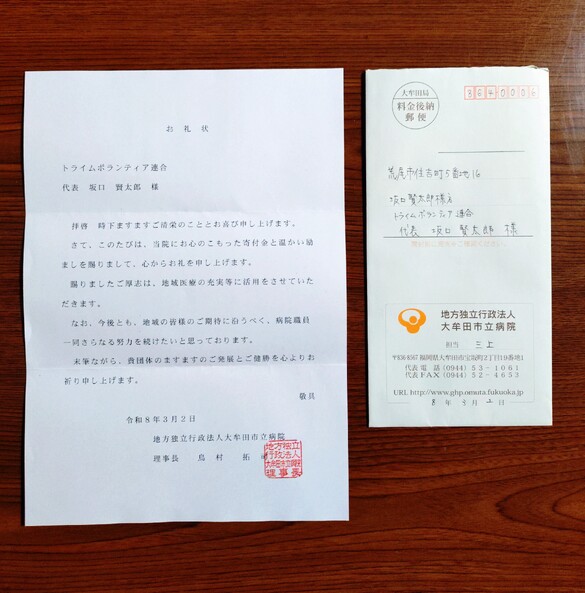 お礼状
トライムボランティア連合
代表 坂口 賢太郎 様
拝啓 時下ますますご清栄のこととお喜び申し上げます。
さて、このたびは、当院にお心のこもった寄付金と温かい励
ましを賜りまして、心からお礼を申し上げます。
賜りましたご厚志は、地域医療の充実等に活用をさせていた
だきます。
なお、今後とも、地域の皆様のご期待に沿うべく、病院職員
一同さらなる努力を続けたいと思っております。
末筆ながら、貴団体のますますのご発展とご健勝を心よりお
祈り申し上げます。
敬具
令和8年3月2日
地方独立行政法人大牟田市立病院
理事長 鳥村 拓
地方独立
行政法人
大牟田市立病院
理事長
大牟田局
料金後納
郵便
8640006
荒尾市住吉町5番地16
坂口賢太郎様方
トライムボランティア連合
代表 坂口 賢太郎 様
地方独立行政法人
大牟田市立病院
担当 三上
〒836-8567 福岡県大牟田市宝坂町2丁目19番地1
代表電話 (0944) 53-1061
代表FAX (0944) 52-4653
URL http://www.ghp.omuta.fukuoka.jp
8年3月2日